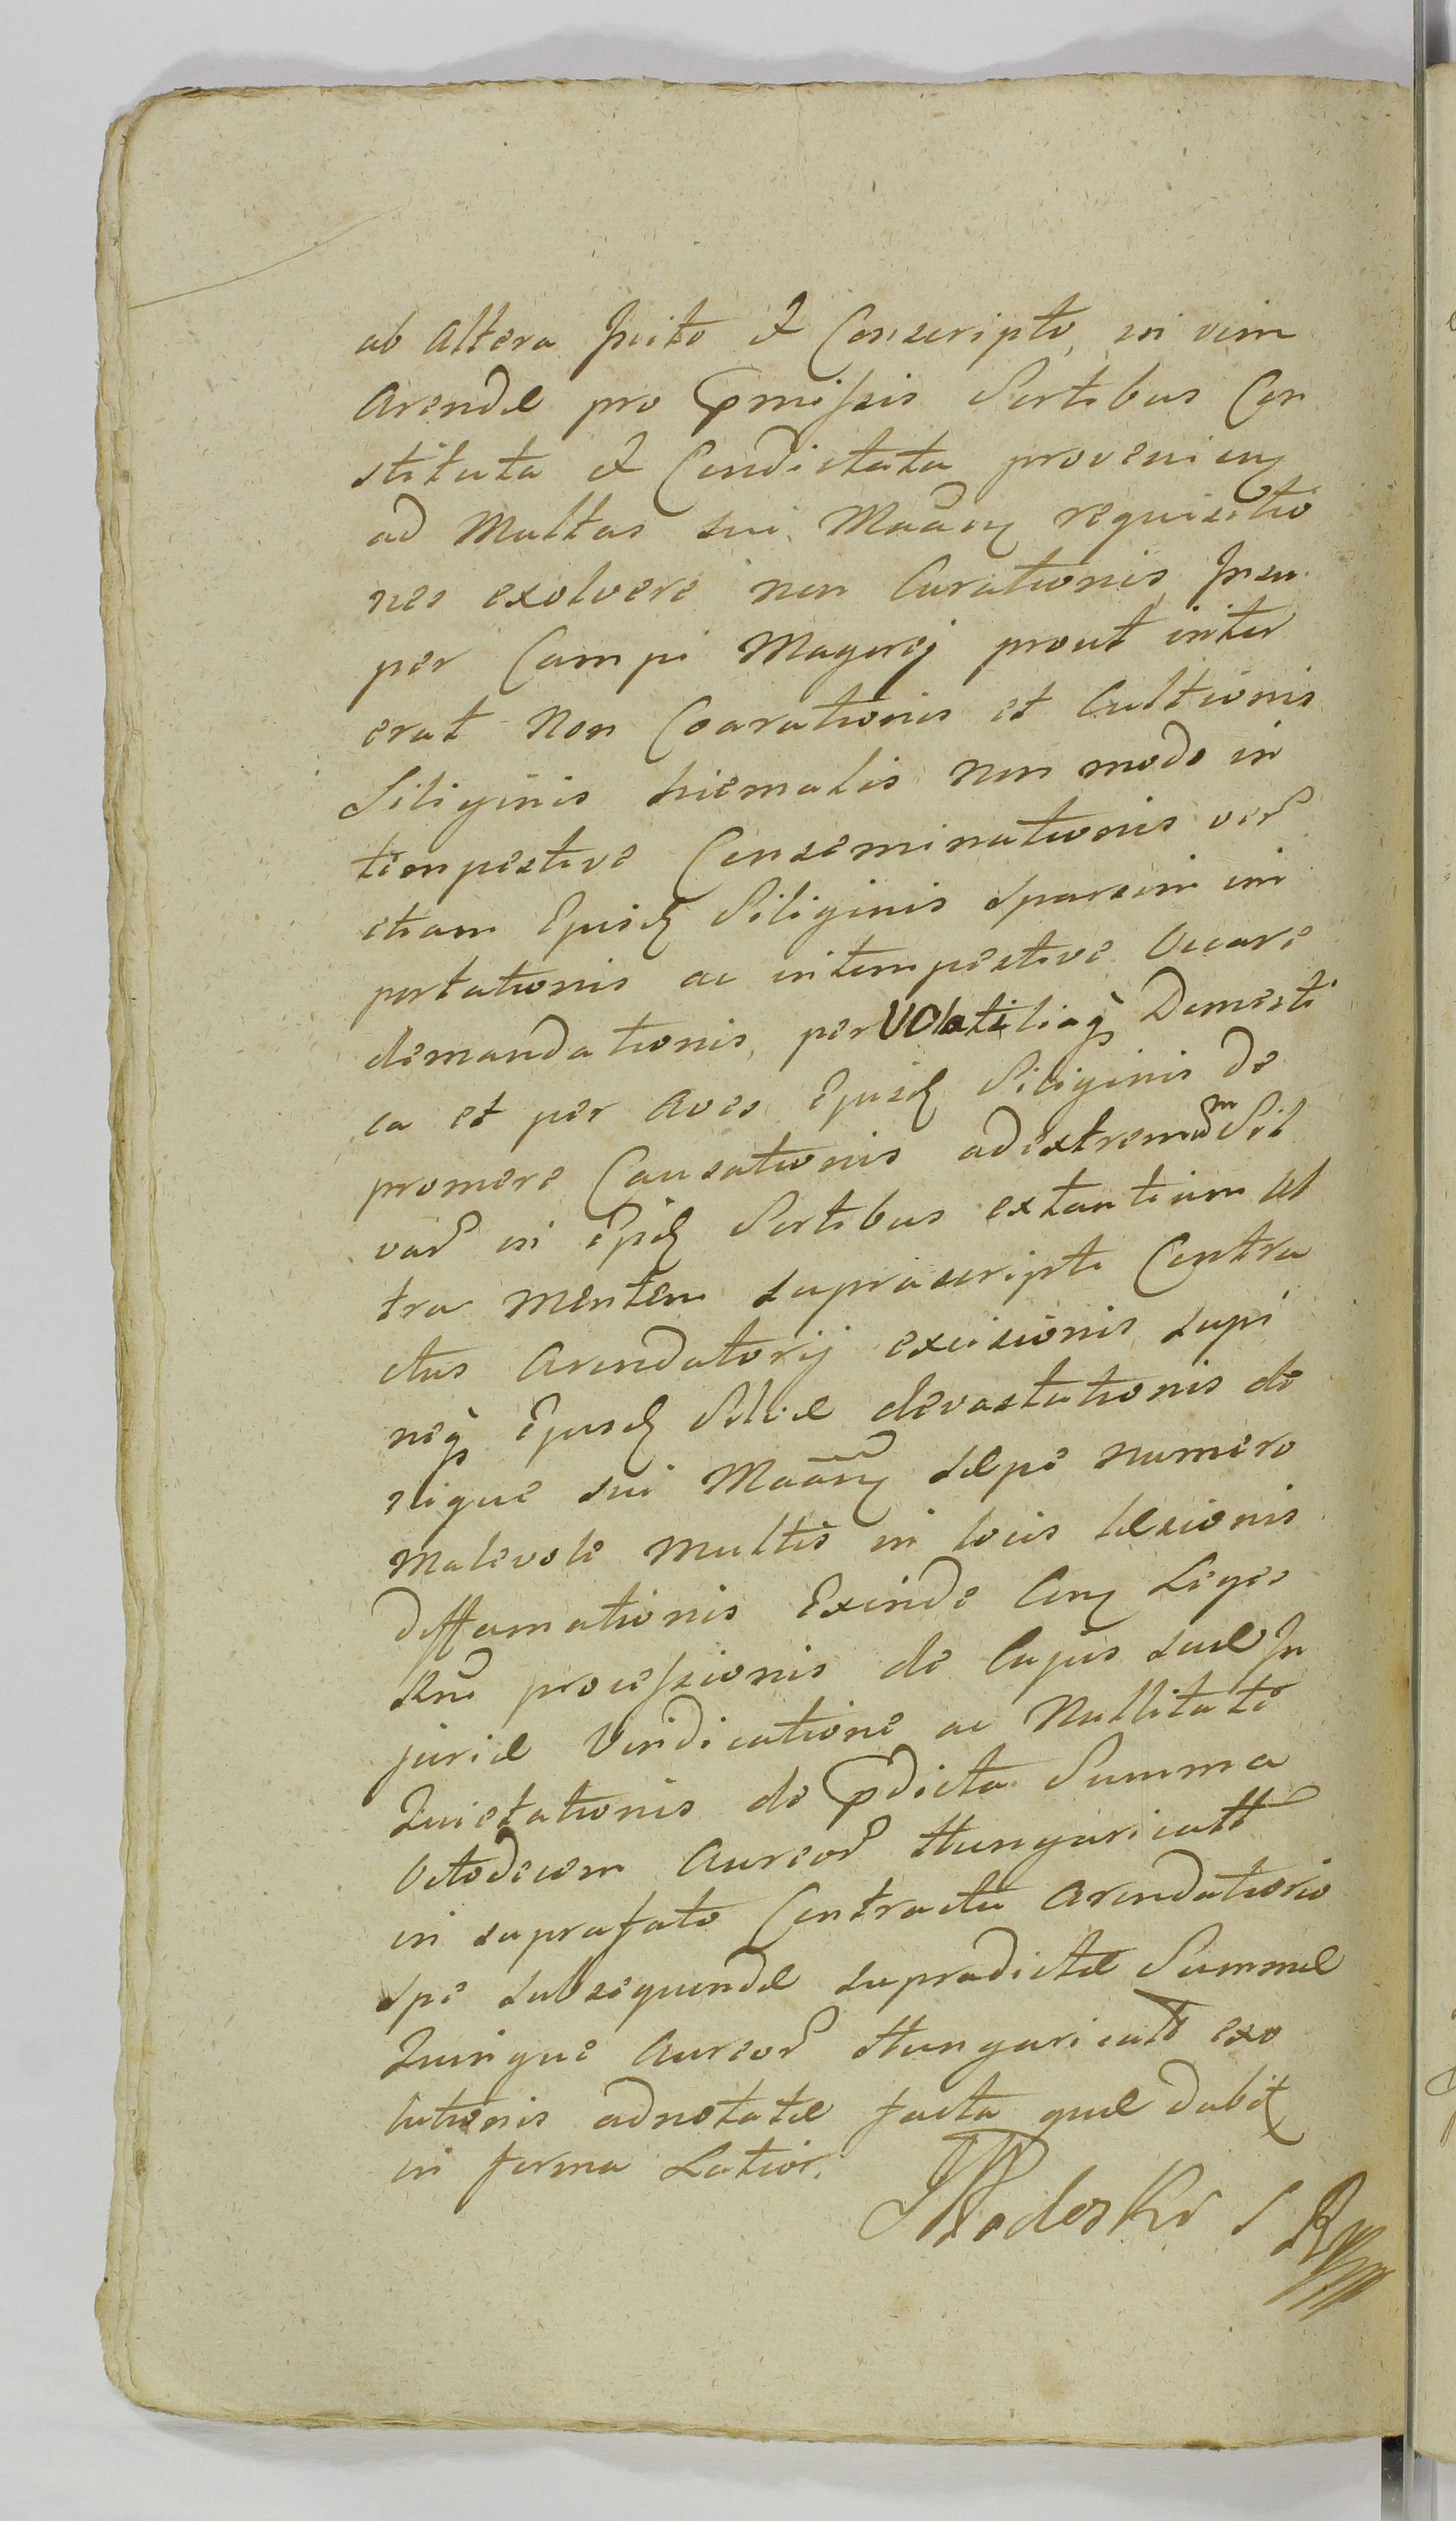 ab altera Inito & Conscripto, in vim
Arendæ pro pmissis Sortibus Con
stituta & Condictata provenien
ad Multas sui Maacn requisitio
nes exolvere non Curationis, Insu
per Campi Magerej prout inter
erat Non Coarationis et Cultionis
Siliginis hiemalis non modo in
tempestive Conseminationis ver
etiam Ejusd Siliginis sparsim im
portationis ac intempestive Occare
demandationis, per Volatiliaq Domesti
ca et per Aves Ejusd Siliginis de
promere Causationis ad extremum Sil
var in Ejusd Sortibus extantium Ul
tra Mentem suprascripti Contra
ctus Arendatorij excisionis, supi
neq Ejusd Silvæ devastationis de
nique sui Maacn sæpe numero
Malevole Multis in locis læsionis
Diffamationis Exinde Cen Leges
Rni processionis de Cujus suæ In
juriæ Vindicatione ac Nullitate
Quietationis de pdicta Summa
Octodecem Aureor Hungaricall
in suprafato Contractu Arendatorio
spe subsequendæ supradictæ Summæ
Quinque Aureor Hungaricall exo
lutionis adnotatæ facta quæ dabit
in forma Latior.